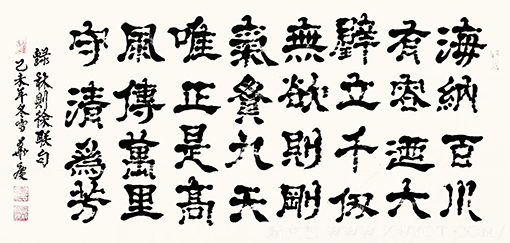 海納百川
有容迺大
壁立千仞
無欲則剛
氣九天
唯正是高
風傳萬里
守清為芳
錄林則徐联句
己未年冬雪